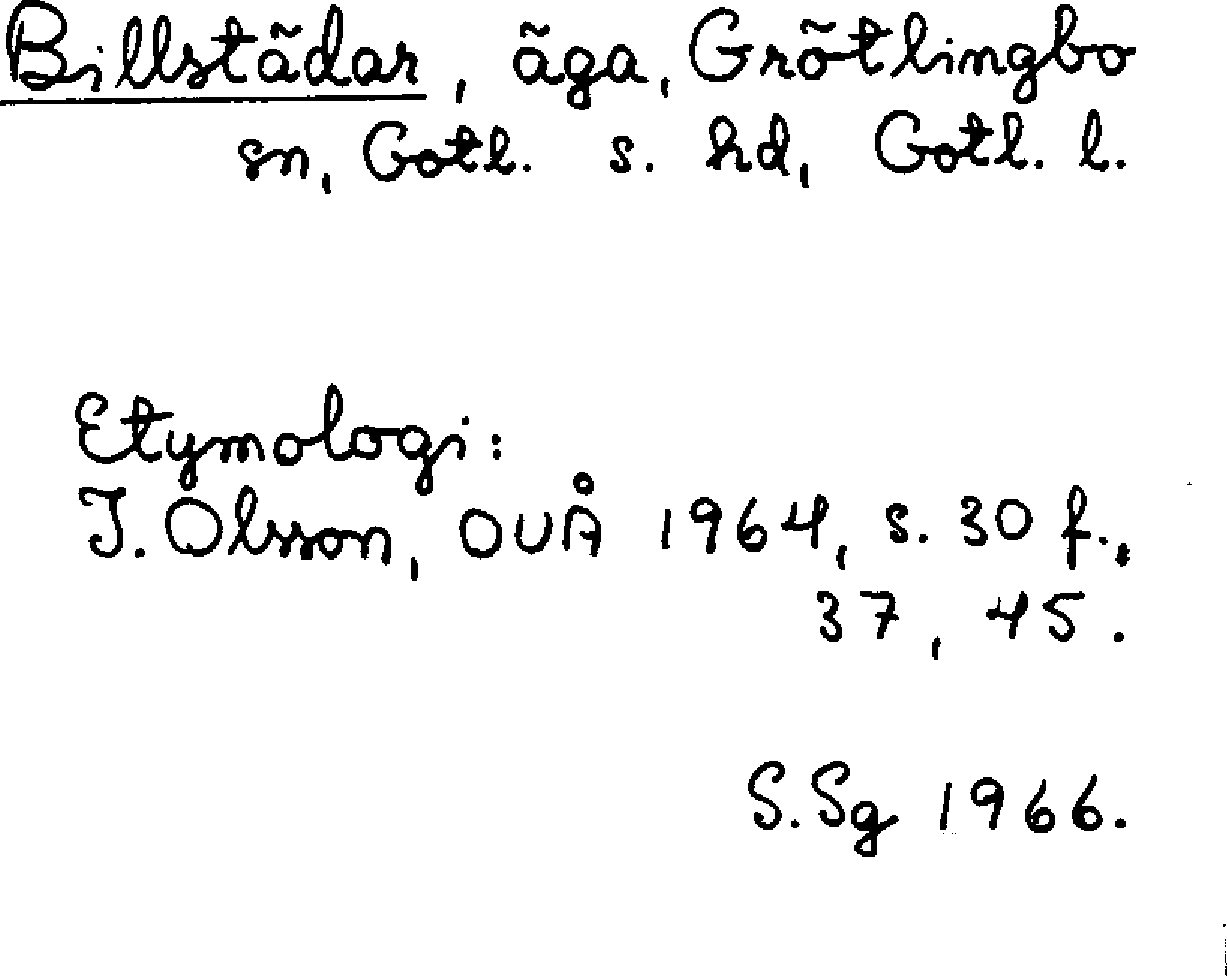 Billstädar, äga, Grötlingbo
sn, Gotl. s. hd, Gotl. l.
Etymologi:
I. Olsson, OUÅ 1964, s. 30 f.,
37, 45.
S. Sg 1966.